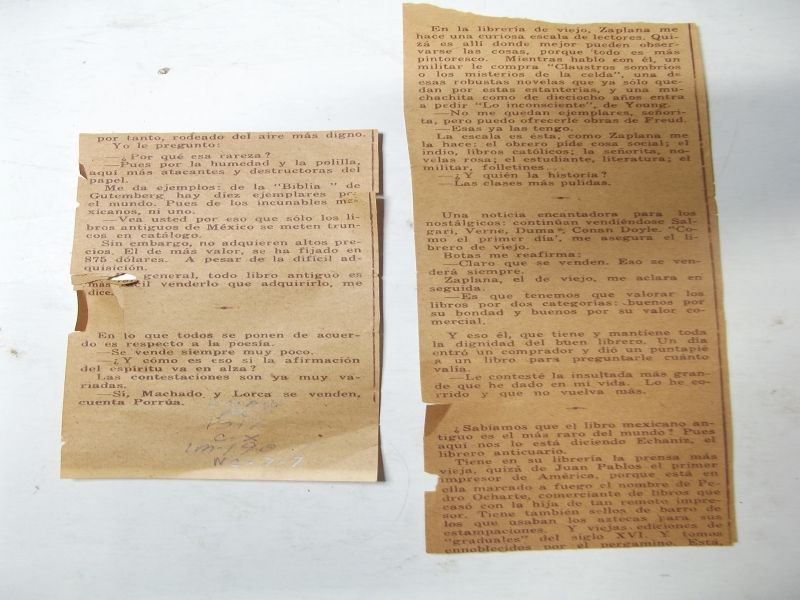 En la librería de viejo, Zaplana me
hace una curiosa escala de lectores. Qui-
zá es allí donde mejor pueden obser-
varse las cosas, porque todo es más
pintoresco. Mientras hablo con él, un
militar le compra "Claustros sombríos
o los misterios de la celda", una de
esas robustas novelas que ya sólo que-
dan por estas estanterías, y una mu-
chachita como de dieciocho años entra
a pedir "Lo inconsciente", de Young.
—No me quedan ejemplares, señori-
ta, pero puedo ofrecerle obras de Freud.
—Esas ya las tengo.
La escala es ésta, como Zaplana me
la hace: el obrero pide cosa social; el
indio, libros católicos; la señorita, no-
velas rosa; el estudiante, literatura; el
militar, folletines.
—¿Y quién la historia?
—Las clases más pulidas.
Una noticia encantadora para los
nostálgicos: continúan vendiéndose Sal-
gari, Verne, Dumas, Conan Doyle. "Co-
mo el primer día", me asegura el li-
brero de viejo.
Botas me reafirma:
—Claro que se venden. Eso se ven-
derá siempre.
Zaplana, el de viejo, me aclara en
seguida.
—Es que tenemos que valorar los
libros por dos categorías: buenos por
su bondad y buenos por su valor co-
mercial.
Y eso él, que tiene y mantiene toda
la dignidad del buen librero. Un día
entró un comprador y dió un puntapié
a un libro para preguntarle cuánto
valía.
—Le contesté la insultada más gran-
de que he dado en mi vida. Lo he co-
rrido y que no vuelva más.
¿Sabíamos que el libro mexicano an-
tiguo es el más raro del mundo? Pues
aquí nos lo está diciendo Echaniz, el
librero anticuario.
Tiene en su librería la prensa más
vieja, quizá de Juan Pablos el primer
impresor de América, porque está en
ella marcado a fuego el nombre de Pe-
dro Ocharte, comerciante de libros que
casó con la hija de tan remoto impre-
sor. Tiene también sellos de barro de
los que usaban los aztecas para sus
estampaciones. Y viejas ediciones de
"graduales" del siglo XVI. Y tomos
ennoblecidos por el pergamino. Está,
por tanto, rodeado del aire más digno.
Yo le pregunto:
—¿Por qué esa rareza?
—Pues por la humedad y la polilla,
aquí más atacantes y destructoras del
papel.
Me da ejemplos: de la "Biblia" de
Gutemberg hay diez ejemplares
el mundo. Pues de los incunables me-
xicanos, ni uno.
—Vea usted por eso que sólo los li-
bros antiguos de México se meten trun-
cos en catálogo.
Sin embargo, no adquieren altos pre-
cios. El de más valor, se ha fijado en
875 dólares. A pesar de la difícil ad-
quisición.
general, todo libro antiguo es
más venderlo que adquirirlo, me
dice.
En lo que todos se ponen de acuer-
do es respecto a la poesía.
—Se vende siempre muy poco.
—¿Y cómo es eso si la afirmación
del espíritu va en alza?
Las contestaciones son ya muy va-
riadas.
—Sí, Machado y Lorca se venden,
cuenta Porrúa.